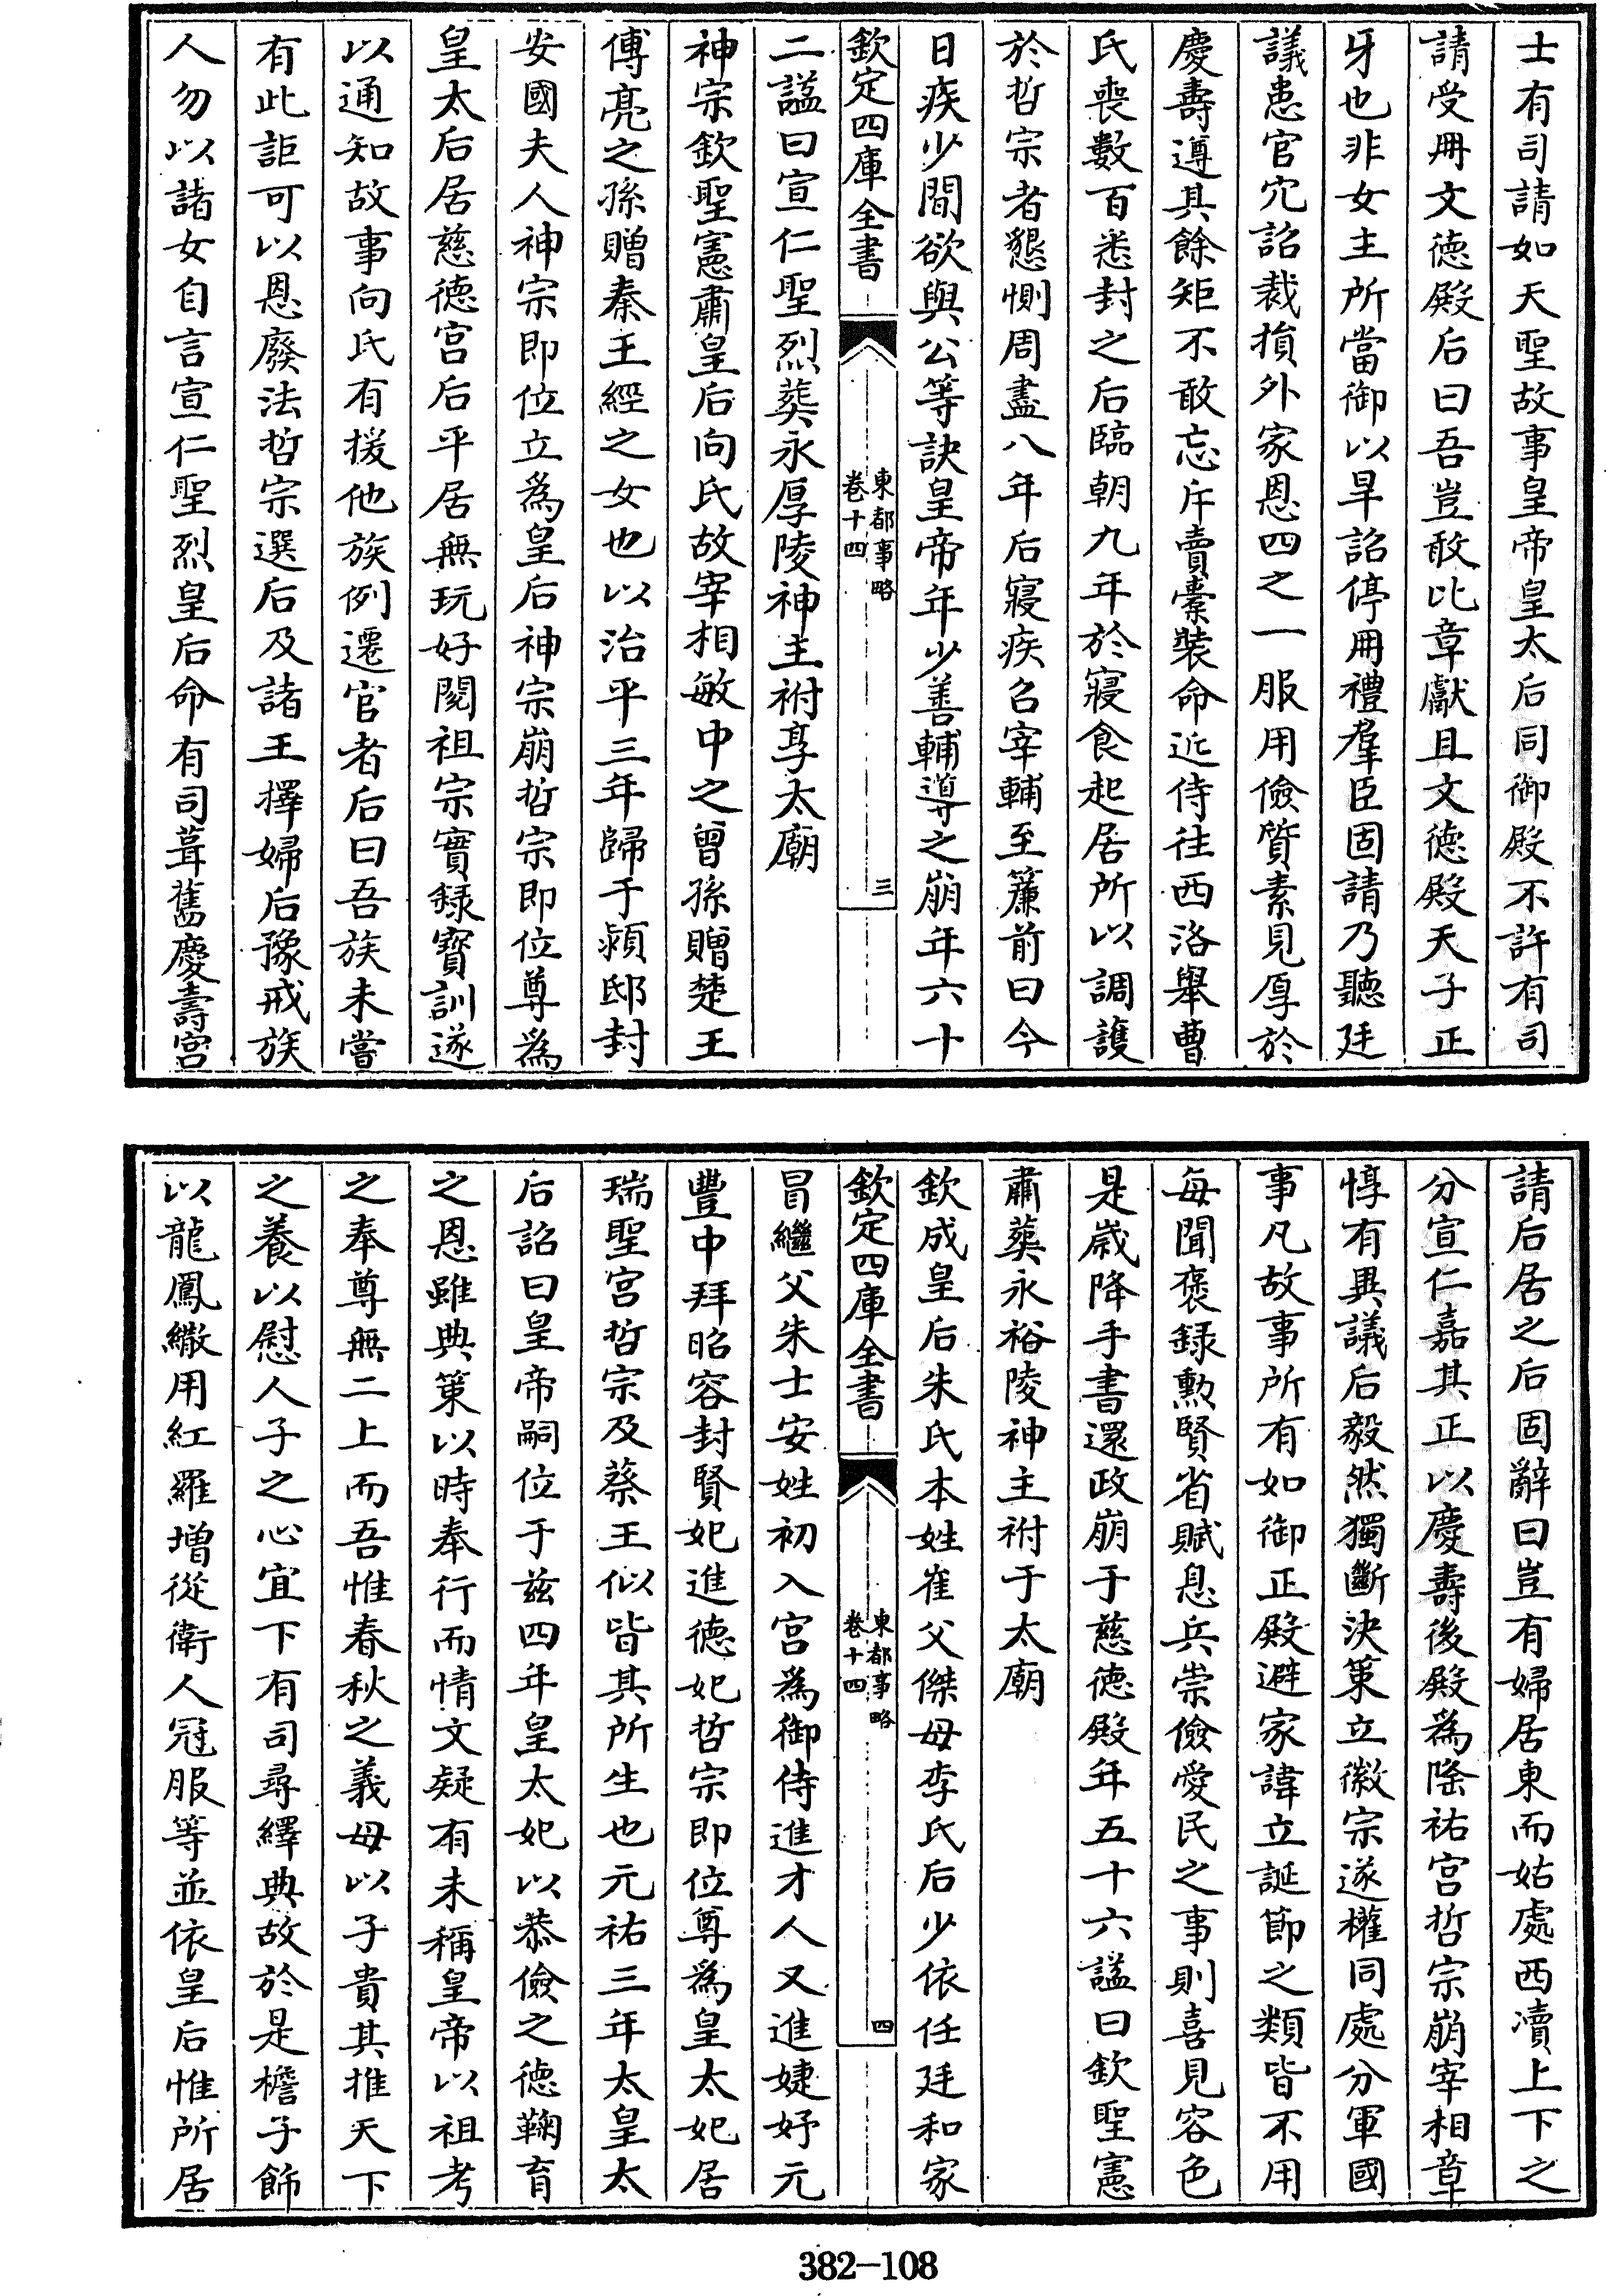 士有司請如天聖故事皇帝皇太后同御殿不許有司
請受冊文徳殿后曰吾豈敢比章獻且文徳殿天子正
牙也非女主所當御以旱詔停冊禮羣臣固請乃聽廷
議患官冗詔裁損外家恩四之一服用儉質素見厚於
慶壽遵其餘矩不敢忘斥賣槖裝命近侍往西洛舉曹
氏喪數百悉封之后臨朝九年於寢食起居所以調護
於哲宗者懇惻周盡八年后寢疾召宰輔至簾前曰今
日疾少間欲與公等訣皇帝年少善輔導之崩年六十
欽定四庫全書
東都事略
卷十四
三
二諡曰宣仁聖烈葬永厚陵神主祔享太廟
神宗欽聖憲肅皇后向氏故宰相敏中之曾孫贈楚王
傅亮之孫贈秦王經之女也以治平三年歸于潁邸封
安國夫人神宗即位立為皇后神宗崩哲宗即位尊為
皇太后居慈徳宫后平居無玩好閱祖宗實録寶訓遂
以通知故事向氏有援他族例遷官者后曰吾族未嘗
有此詎可以恩廢法哲宗選后及諸王擇婦后豫戒族
人勿以諸女自言宣仁聖烈皇后命有司葺舊慶壽宫
請后居之后固辭曰豈有婦居東而姑處西瀆上下之
分宣仁嘉其正以慶壽後殿為隆祐宫哲宗崩宰相章
惇有異議后毅然獨斷決策立徽宗遂權同處分軍國
事凡故事所有如御正殿避家諱立誕節之類皆不用
每聞褒録勲賢省賦息兵崇儉愛民之事則喜見容色
是嵗降手書還政崩于慈徳殿年五十六諡曰欽聖憲
肅葬永裕陵神主祔于太廟
欽成皇后朱氏本姓崔父傑母李氏后少依任廷和家
欽定四庫全書
東都事略
卷十四
四
冒繼父朱士安姓初入宫為御侍進才人又進婕妤元
豐中拜昭容封賢妃進徳妃哲宗即位尊為皇太妃居
瑞聖宫哲宗及蔡王似皆其所生也元祐三年太皇太
后詔曰皇帝嗣位于兹四年皇太妃以恭儉之徳鞠育
之恩雖典策以時奉行而情文疑有未稱皇帝以祖考
之奉尊無二上而吾惟春秋之義母以子貴其推天下
之養以慰人子之心宜下有司尋繹典故於是檐子飾
以龍鳳繖用紅羅增從衛人冠服等並依皇后惟所居
382-108